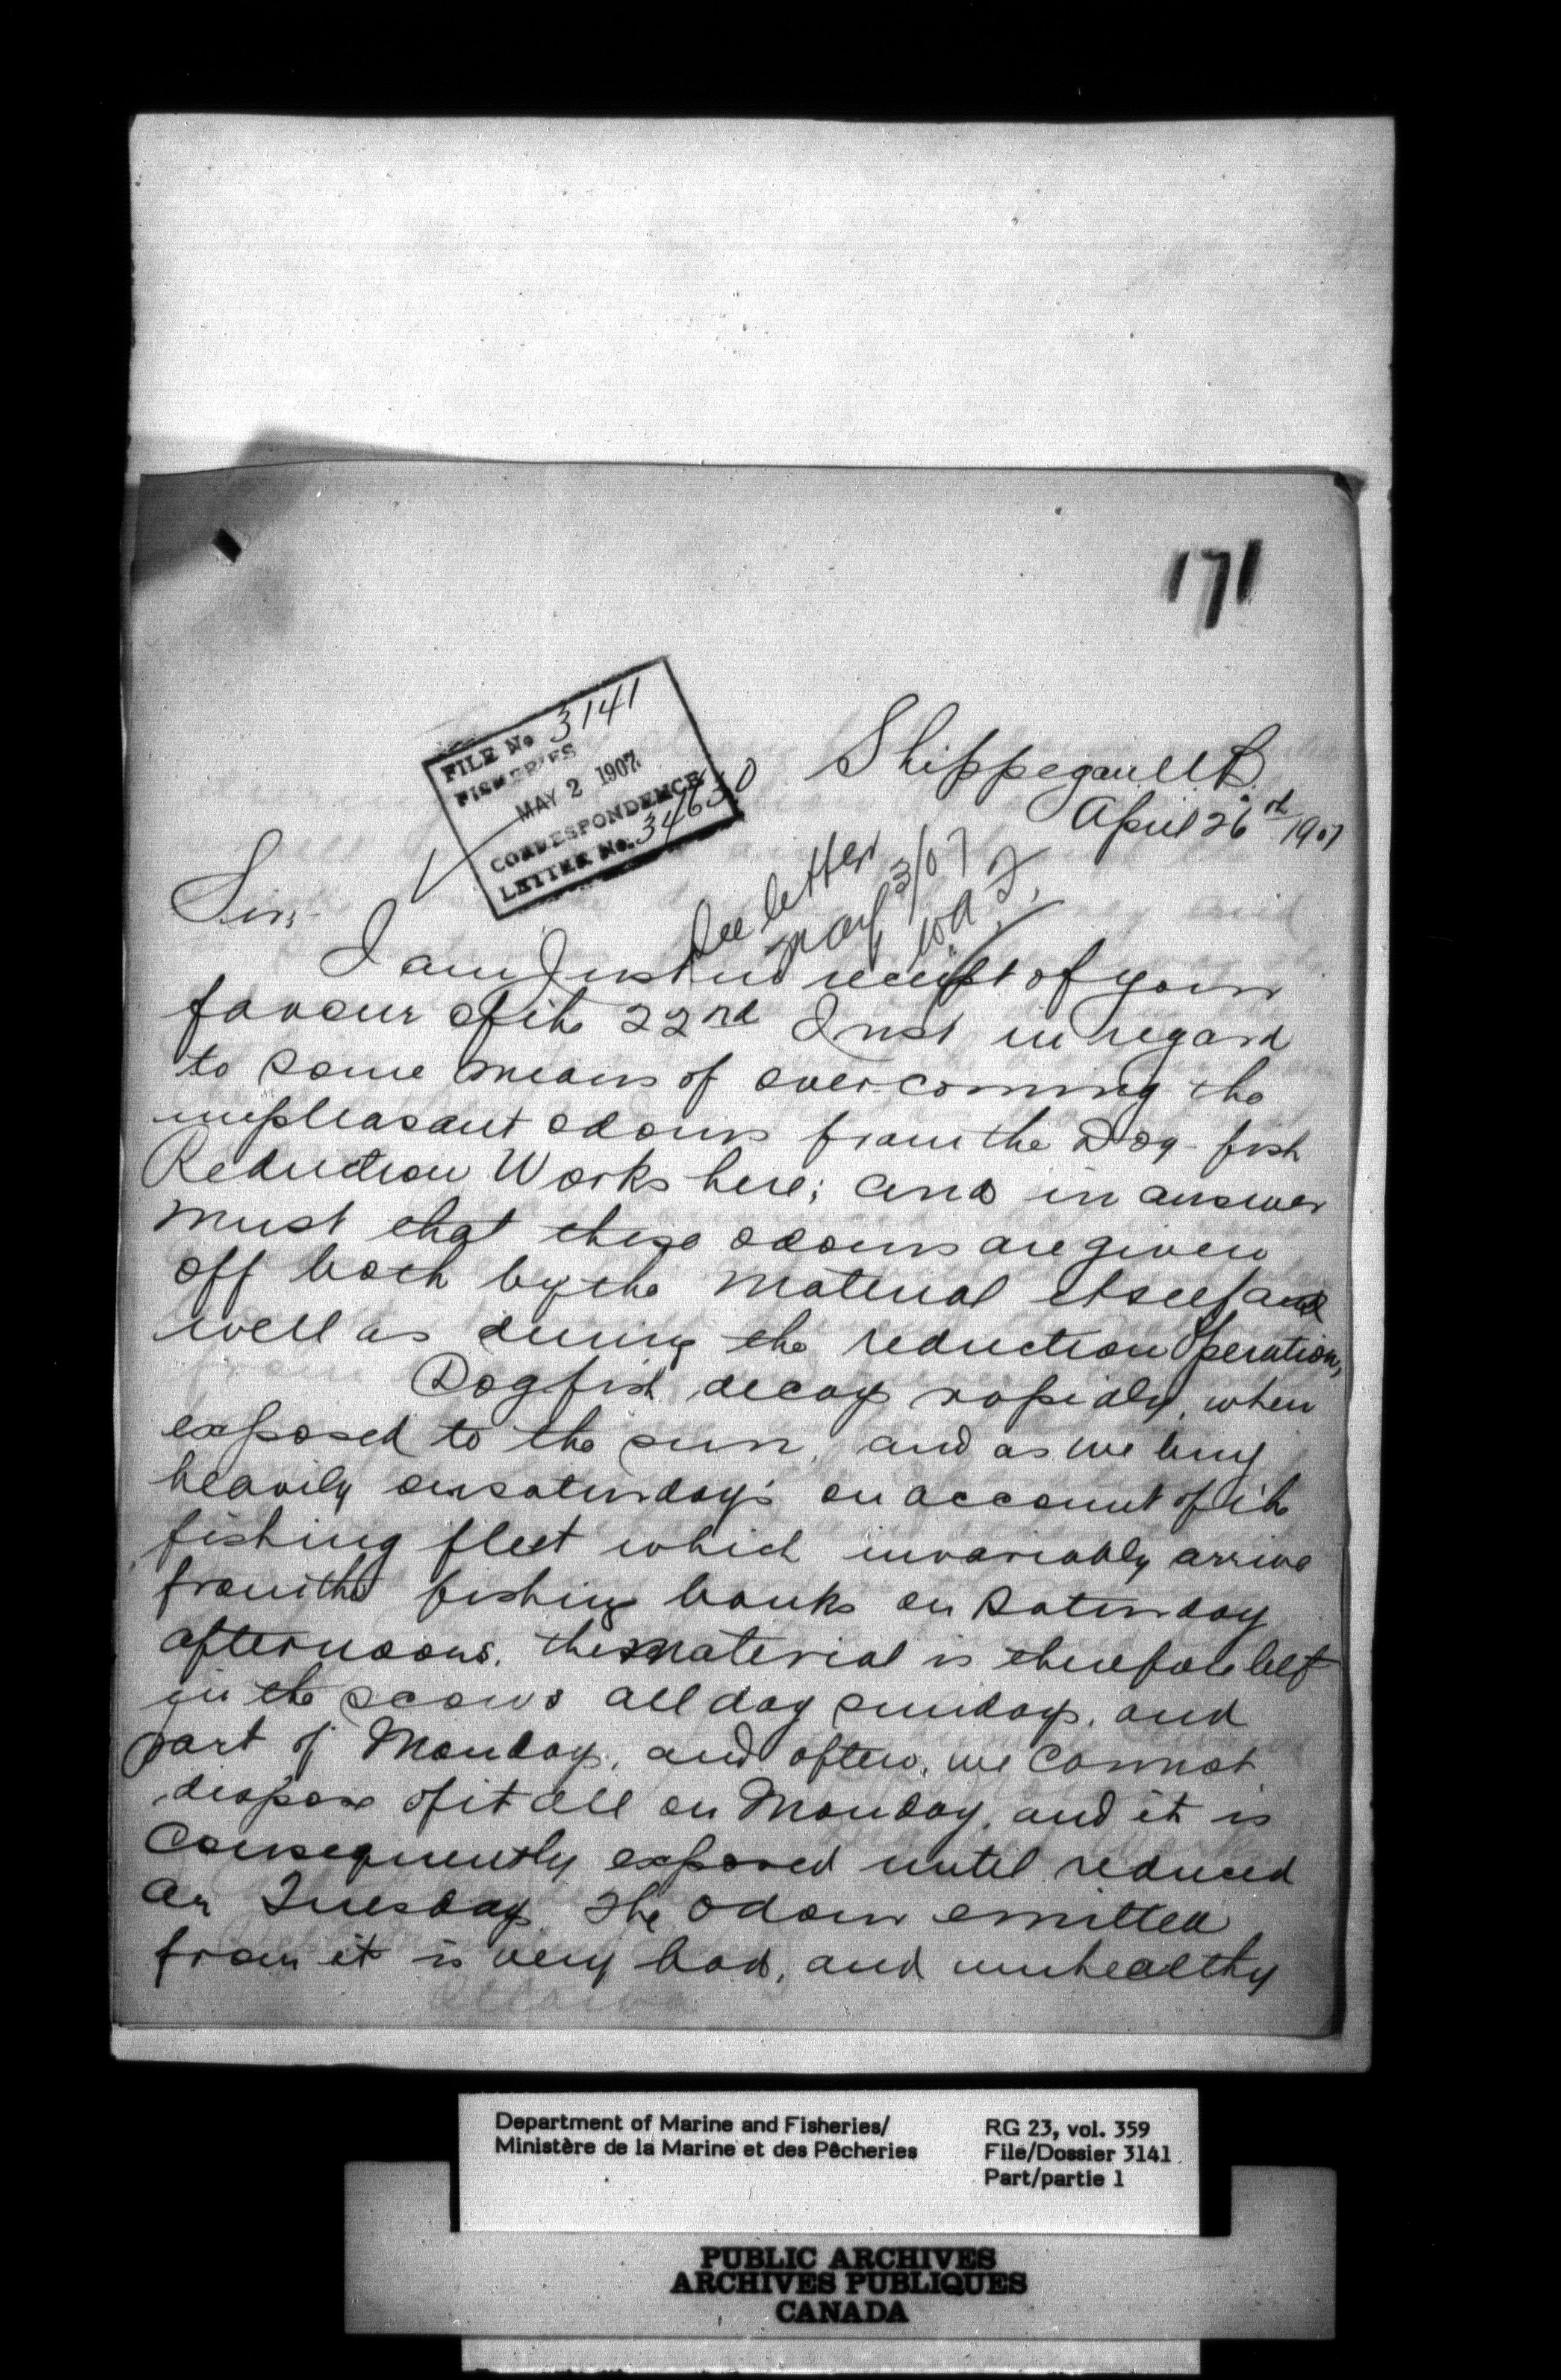 171
FILE No 3141
FISHERIES
MAY 2 1907
CORRESPONDENCE
LETTER No. 34630
Shippegan N.B.
April 26th 1907
See letter
May 3/07
Sir,
I am Just in receipt of your
favour of the 22nd Inst in regard
to some means of over-coming the
unpleasant odours from the Dog-fish
Reduction Works here; and in answer
must that these odours are given
off both by the material itself and
well as during the reduction Operation,
Dogfish decay rapidly, when
exposed to the sun, and as we buy
heavily on saturday's on account of the
fishing fleet which invariably arrive
from the fishing banks on Saturday
afternoons. the material is therefore left
in the scows all day sunday, and
part of Monday, and often, we cannot
dispose of it all on Monday, and it is
Consequently exposed until reduced
on Tuesday. The odour emitted
from it is very bad, and unhealthy
Department of Marine and Fisheries/
Ministère de la Marine et des Pêcheries
RG 23, vol. 359
File/Dossier 3141
Part/partie 1
PUBLIC ARCHIVES
ARCHIVES PUBLIQUES
CANADA